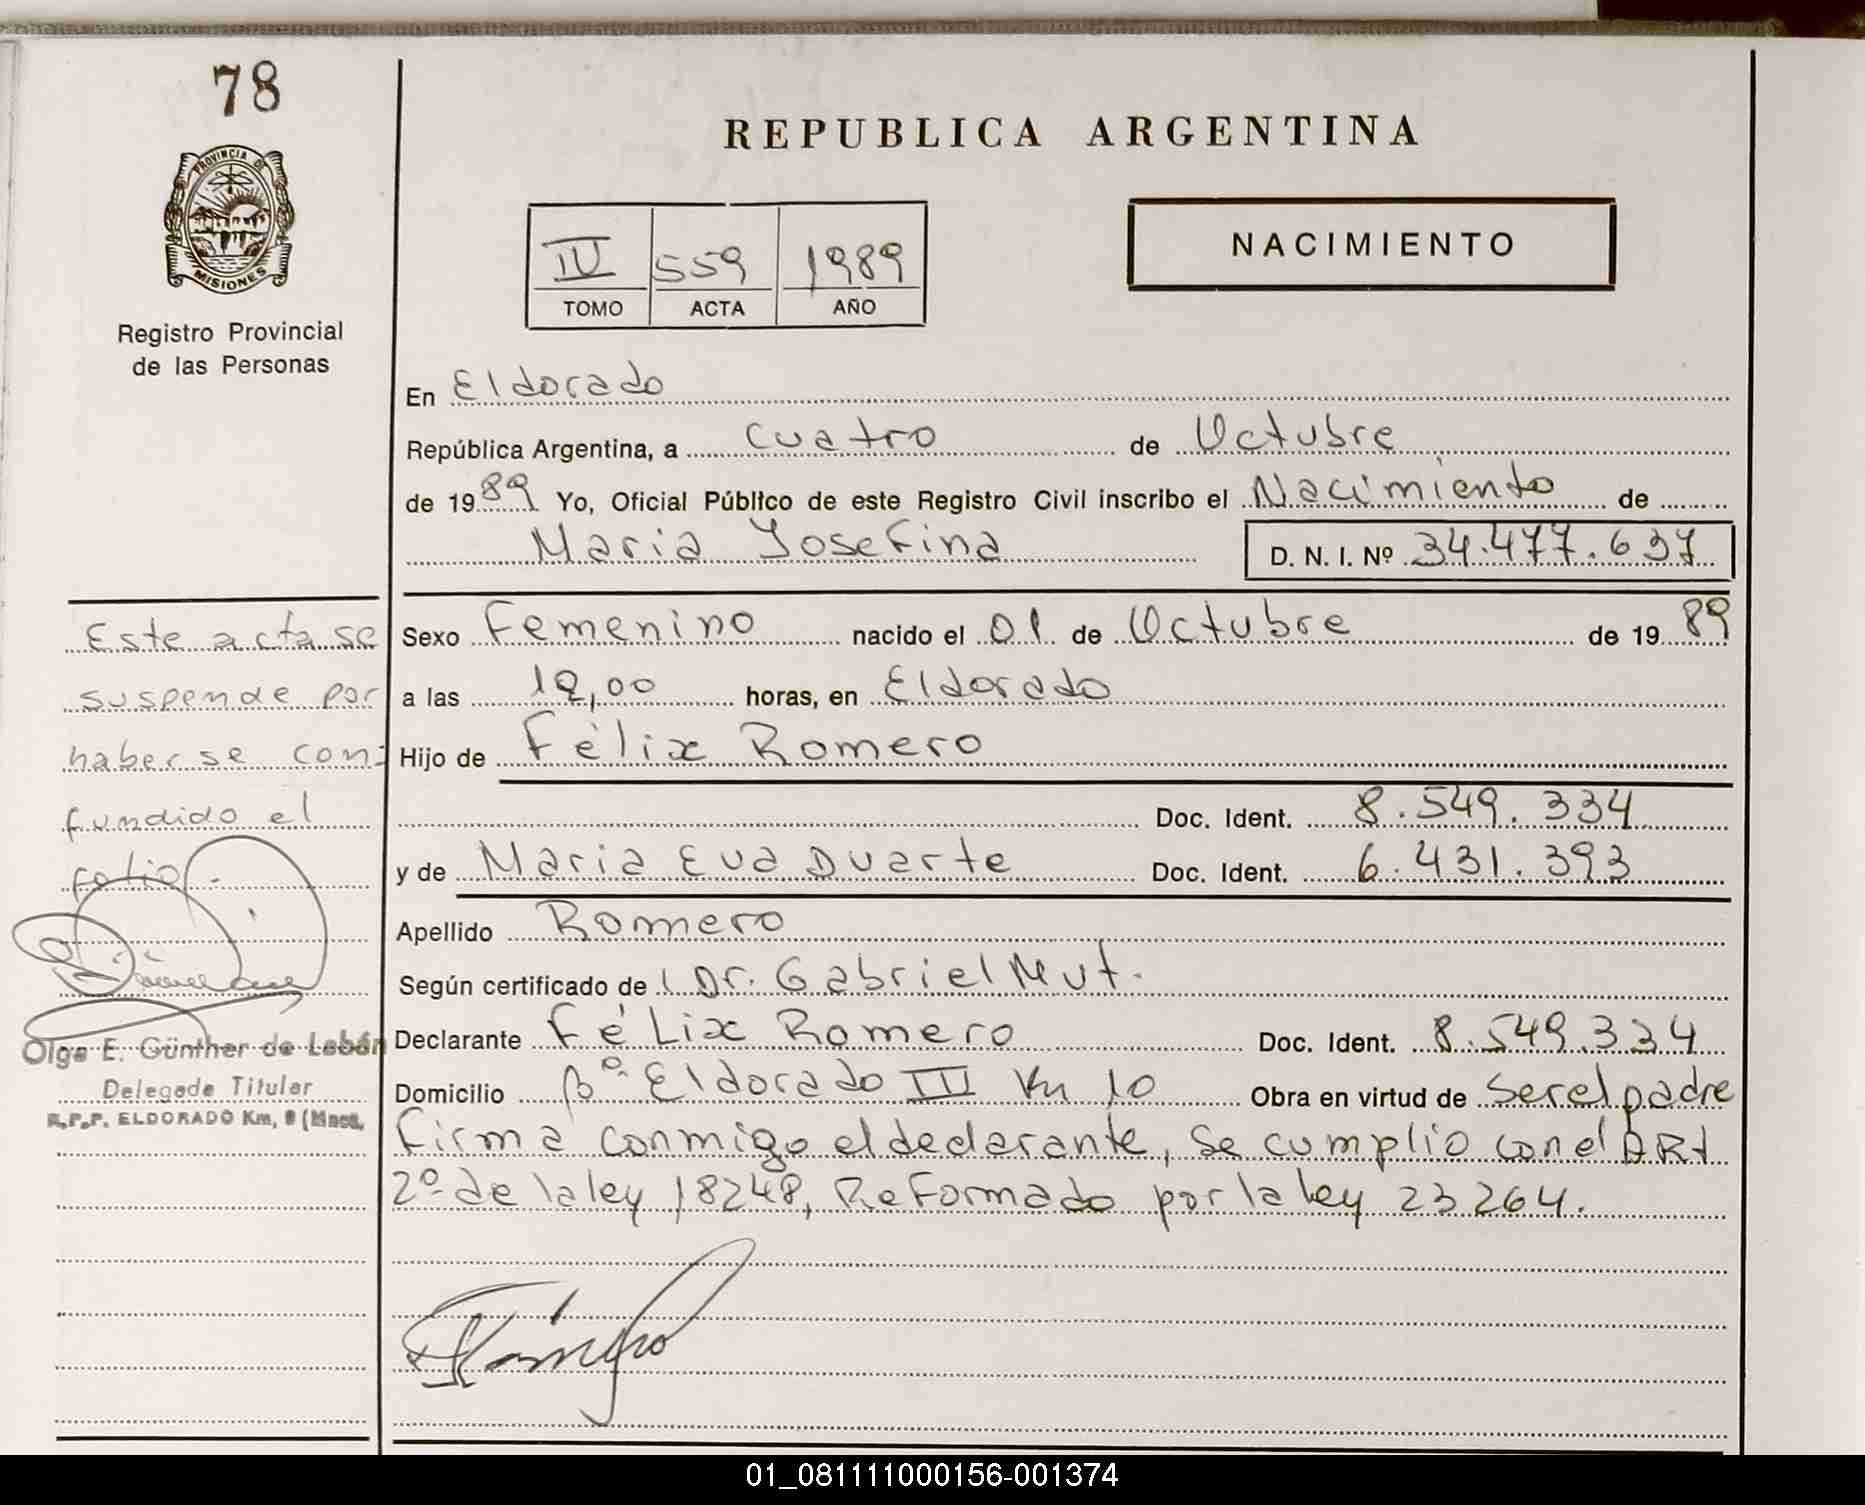 78
PROVINCIA DE
MISIONES
Registro Provincial
de las Personas
REPUBLICA ARGENTINA
NACIMIENTO
IV 559 1989
TOMO ACTA AÑO
En Eldorado
República Argentina, a cuatro de Octubre
de 1989 Yo, Oficial Público de este Registro Civil inscribo el Nacimiento de
Maria Josefina D. N. I. Nº 34.477.637
Sexo Femenino nacido el 01 de Octubre de 1989
a las 12,00 horas, en Eldorado
Hijo de Félix Romero
Doc. Ident. 8.549.334
y de Maria Eva Duarte Doc. Ident. 6.431.393
Apellido Romero
Según certificado de Dr. Gabriel Mut.
Declarante Félix Romero Doc. Ident. 8.549.334
Domicilio Bº Eldorado III Km 10 Obra en virtud de ser el padre
Firma conmigo el declarante, se cumplio con el ARt
2º de la ley 18248, Reformado por la ley 23264.
Este acta se
suspende por
haberse con-
fundido el
folio.-
Olga E. Günther de Lebán
Delegada Titular
R.P.P. ELDORADO Km, 9 (Mnes,
01_081111000156-001374